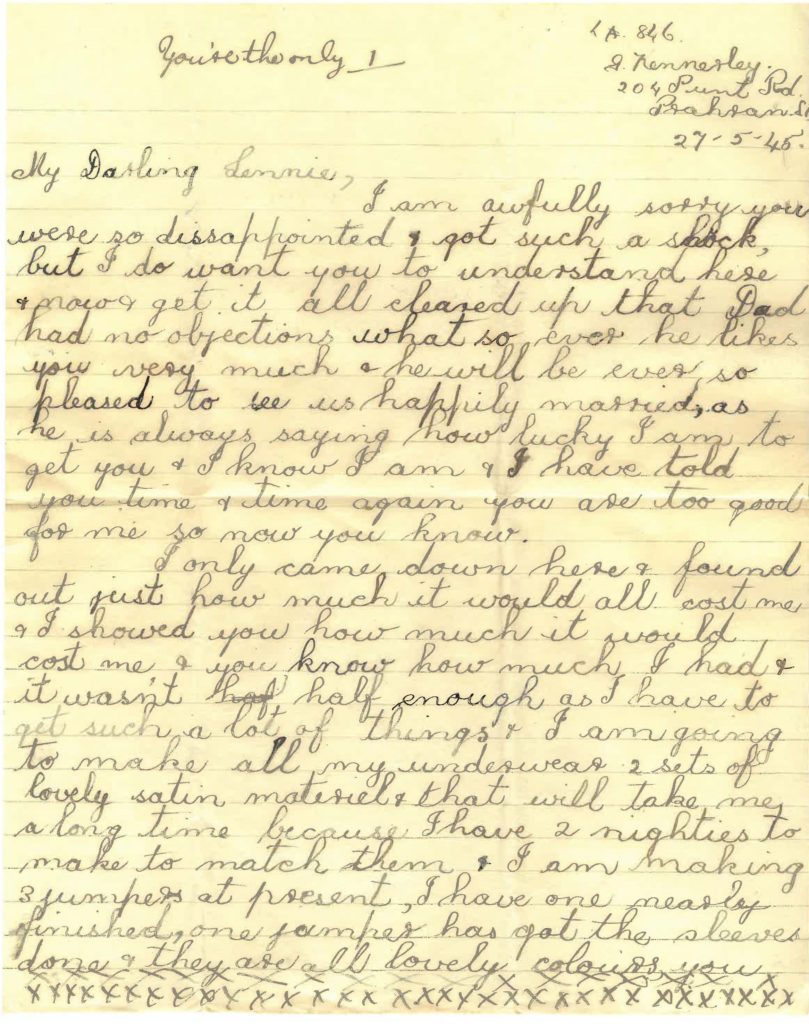 You're the only 1
LA. 846.
J. Kennerley.
204 Punt Rd.
Prahran S1
27-5-45.
My Darling Lennie,
I am awfully sorry you
were so dissappointed & got such a shock,
but I do want you to understand here
& now & get it all cleared up that Dad
had no objections what so ever he likes
you very much & he will be ever so
pleased to see us happily married, as
he is always saying how lucky I am to
get you & I know I am & I have told
you time & time again you are too good
for me so now you know.
I only came down here & found
out just how much it would all cost me
& I showed you how much it would
cost me & you know how much I had &
it wasn't haf half enough as I have to
get such a lot of things & I am going
to make all my underwear 2 sets of
lovely satin materiel & that will take me
a long time because I have 2 nighties to
make to match them & I am making
3 jumpers at present, I have one nearly
finished, one jumper has got the sleeves
done & they are all lovely colours, you
xxxxxxxxxxxxxxxxxxxxxxxxxxxxxxxx